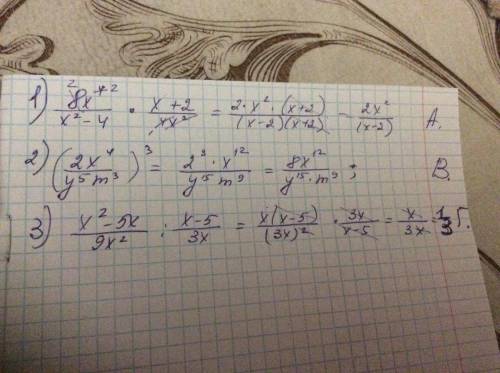 1) 8x⁴ ² 2 / x² - 4 · x + 2 / 4x² = 2 · x² · (x+2) / (x-2)(x+2) = 2x² / (x-2) А.
2) (2x⁴ / y⁵m³)³ = 2³ · x¹² / y¹⁵m⁹ = 8x¹² / y¹⁵·m⁹ ; В.
3) x² - 5x / 9x² : x-5 / 3x = x(x-5) / (3x)² · 3x / x-5 = x / 3x = 1/3 Б.